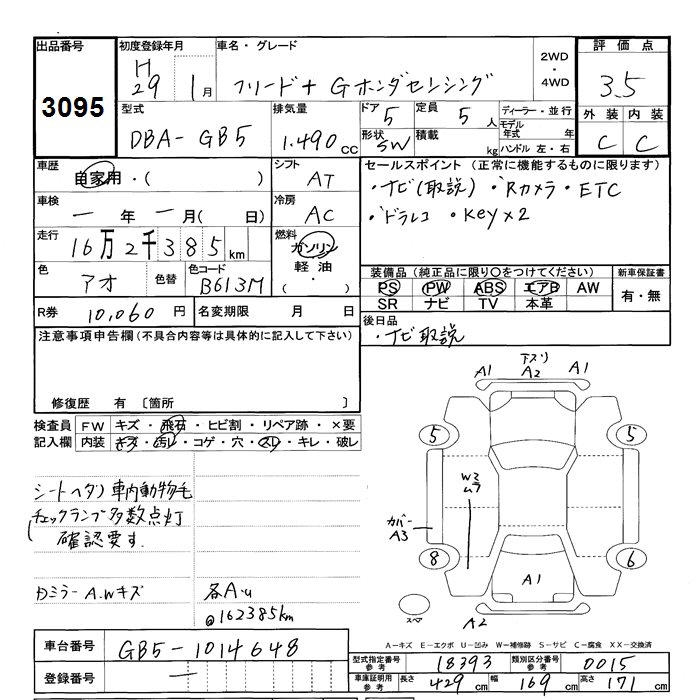 出品番号
3095
初度登録年月
H
29 1月
車名・グレード
フリード+ Gホンダセンシング
2WD
・
4WD
評価点
3.5
外装 内装
C C
型式
DBA-GB5
排気量
1.490 CC
ドア 5
形状 SW
定員 5 人
積載 kg
ディーラー・並行
モデル
年式 年
ハンドル 左・右
車歴
自家用・( )
シフト
AT
車検
― 年 ― 月( 日)
冷房
AC
走行
16万2千385 km
燃料
ガソリン
軽油
( ・ )
色
アオ
色替
色コード
B613M
R券 10,060 円
名変期限 月 日
セールスポイント(正常に機能するものに限ります)
・ナビ(取説)・Rカメラ・ETC
・ドラレコ ・Key×2
装備品(純正品に限り〇をつけてください)
PS PW ABS エアB AW
SR ナビ TV 本革
新車保証書
有・無
後日品
・ナビ取説
注意事項申告欄(不具合内容等は具体的に記入して下さい)
修復歴 有 〔箇所 〕
検査員
記入欄
FW キズ・飛石・ヒビ割・リペア跡・×要
内装 キズ・汚レ・コゲ・穴・スレ・キレ・破レ
シートヘタリ 車内動物毛
チェックランプ多数点灯
確認要す.
Dミラー A.Wキズ
各A.U
@162385km
A1 下スリ A2 A1
5 5
Wミ
ムラ
カバー
A3
8 6
A1
スペア
A2
A－キズ E－エクボ U－凹み W－補修跡 S－サビ C－腐食 XX－交換済
車台番号 GB5-1014648
登録番号 ―
型式指定番号
参考
18393
類別区分番号
参考
0015
車庫証明用
参考
長さ 429 cm 幅 169 cm 高さ 171 cm